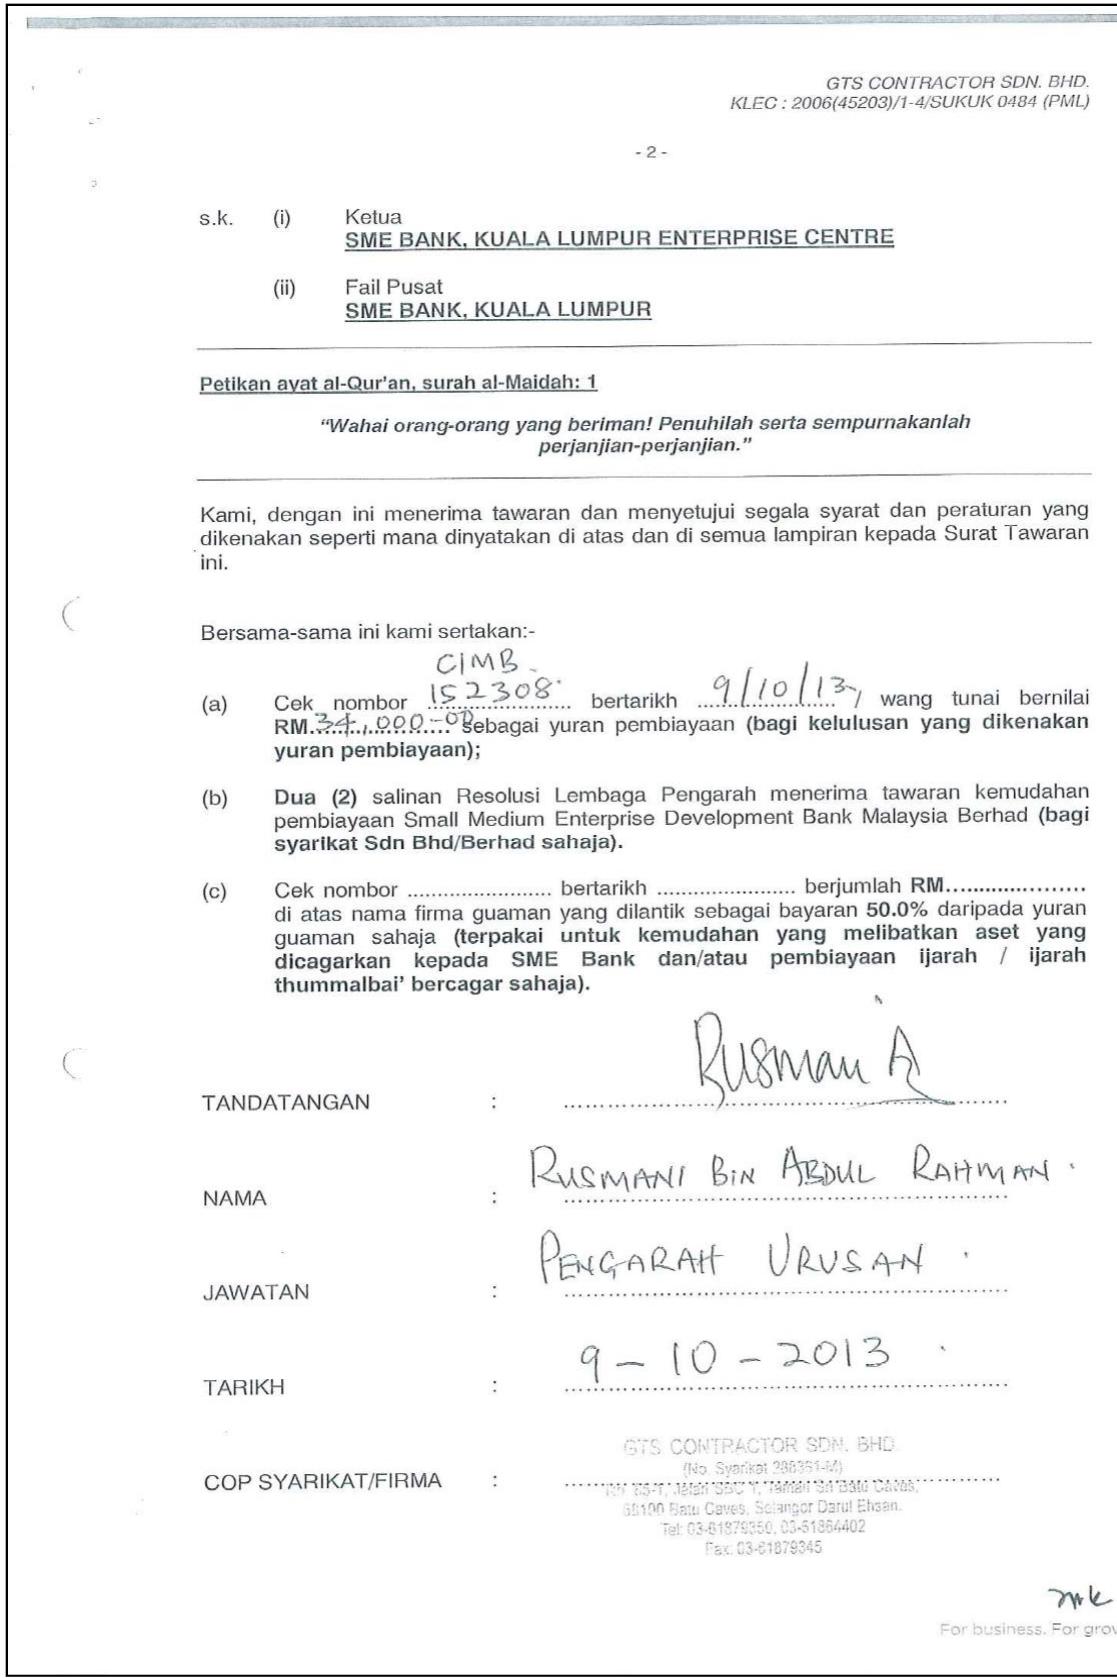 GTS CONTRACTOR SDN. BHD.
KLEC : 2006(45203)/1-4/SUKUK 0484 (PML)
- 2 -
s.k. (i) Ketua
SME BANK, KUALA LUMPUR ENTERPRISE CENTRE
(ii) Fail Pusat
SME BANK, KUALA LUMPUR
Petikan ayat al-Qur'an, surah al-Maidah: 1
"Wahai orang-orang yang beriman! Penuhilah serta sempurnakanlah
perjanjian-perjanjian."
Kami, dengan ini menerima tawaran dan menyetujui segala syarat dan peraturan yang
dikenakan seperti mana dinyatakan di atas dan di semua lampiran kepada Surat Tawaran
ini.
Bersama-sama ini kami sertakan:-
CIMB
(a) Cek nombor 152308 bertarikh 9/10/13 / wang tunai bernilai
RM 34,000-00 sebagai yuran pembiayaan (bagi kelulusan yang dikenakan
yuran pembiayaan);
(b) Dua (2) salinan Resolusi Lembaga Pengarah menerima tawaran kemudahan
pembiayaan Small Medium Enterprise Development Bank Malaysia Berhad (bagi
syarikat Sdn Bhd/Berhad sahaja).
(c) Cek nombor ...................... bertarikh ...................... berjumlah RM......................
di atas nama firma guaman yang dilantik sebagai bayaran 50.0% daripada yuran
guaman sahaja (terpakai untuk kemudahan yang melibatkan aset yang
dicagarkan kepada SME Bank dan/atau pembiayaan ijarah / ijarah
thummalbai' bercagar sahaja).
TANDATANGAN : Rusman A
NAMA : RUSMANI BIN ABDUL RAHMAN
JAWATAN : PENGARAH URUSAN
TARIKH : 9-10-2013
GTS CONTRACTOR SDN. BHD.
(No. Syarikat 288351-M)
COP SYARIKAT/FIRMA :
Jalan SBC 1, Taman Sri Batu Caves,
68100 Batu Caves, Selangor Darul Ehsan.
Tel: 03-61879350, 03-61864402
Fax: 03-61879345
For business. For grow